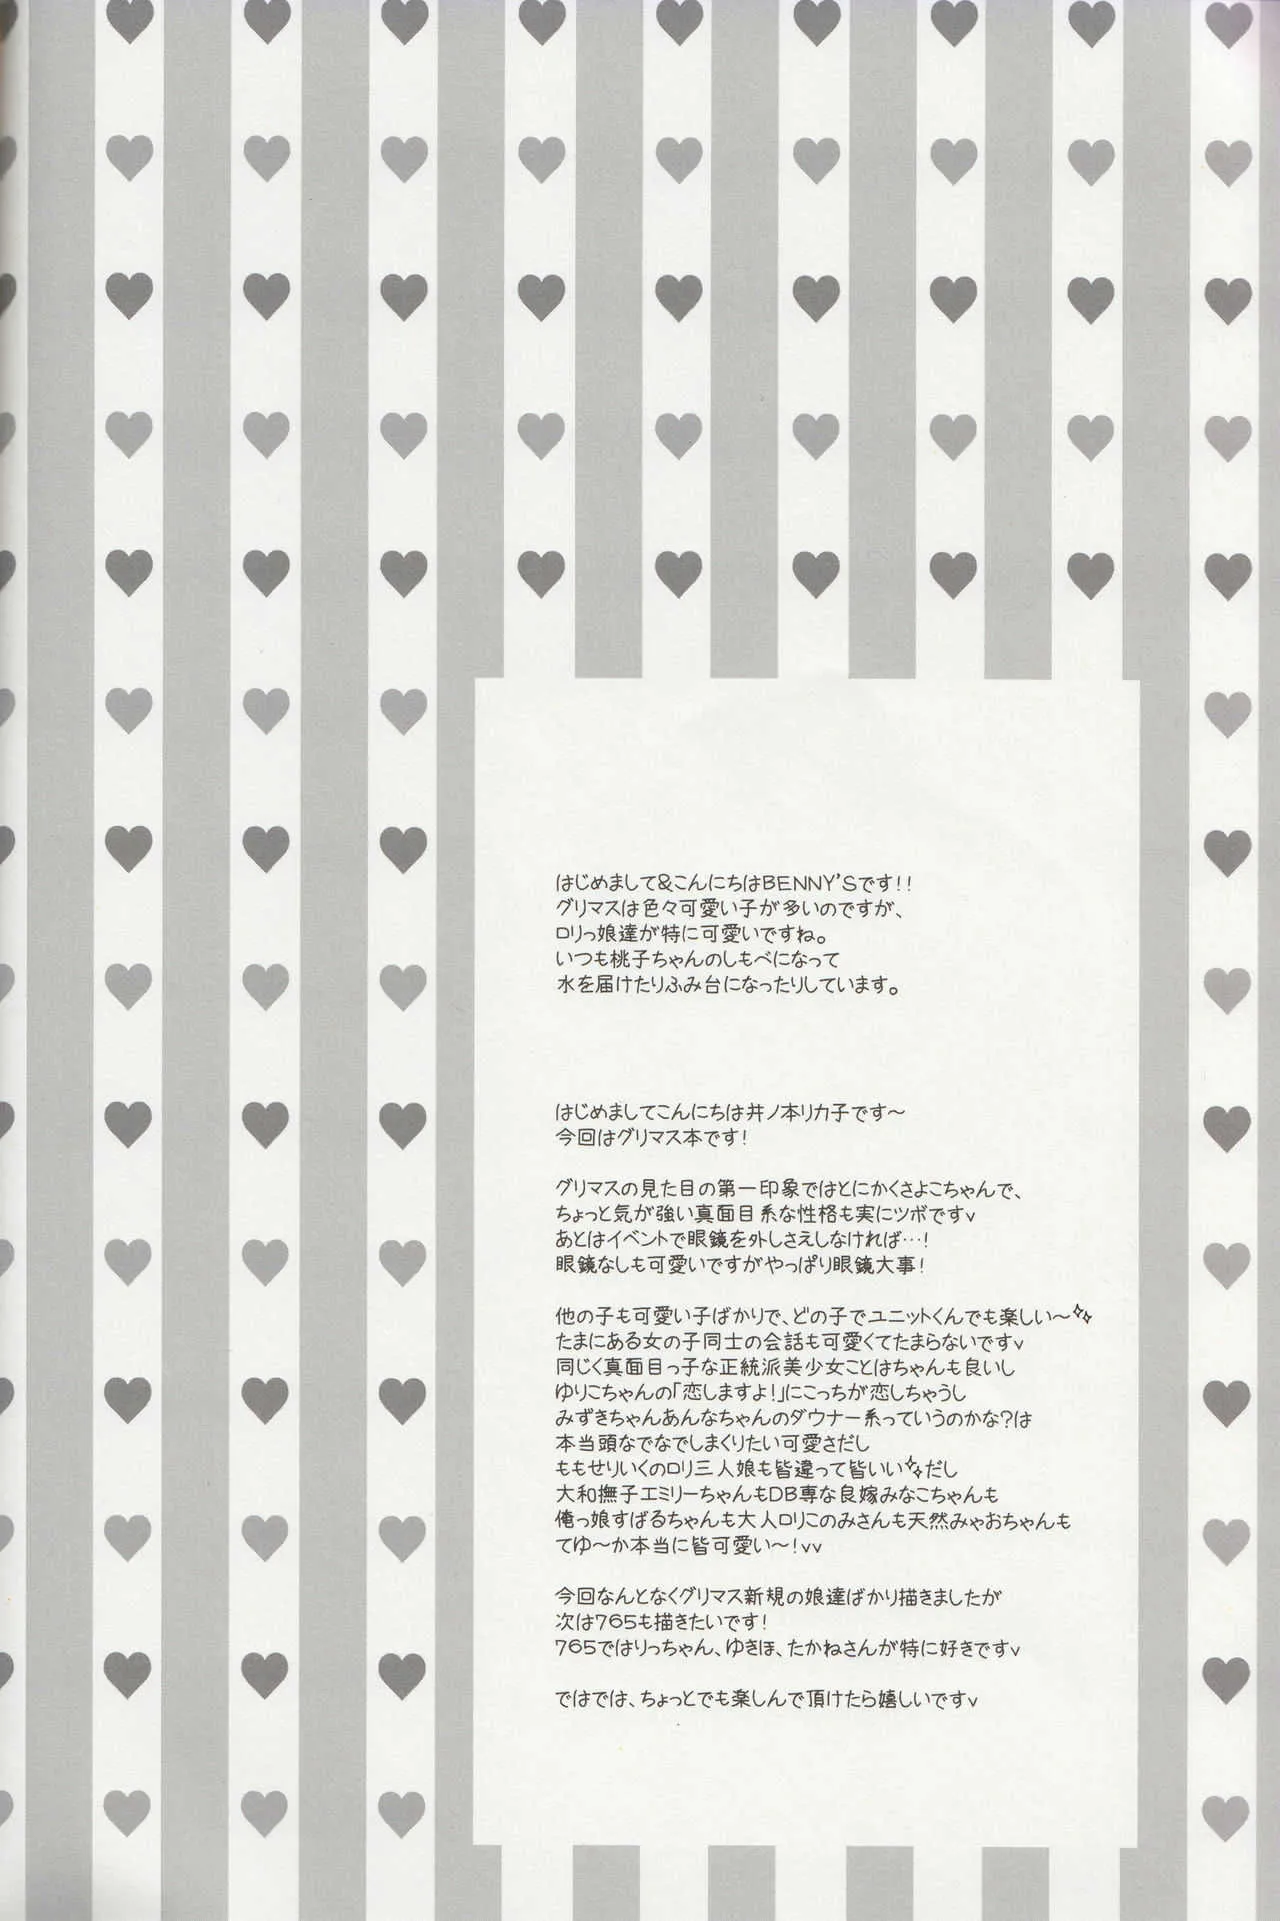 はじめまして&こんにちはBENNY'Sです!!
グリマスは色々可愛い子が多いのですが、
ロリっ娘達が特に可愛いですね。
いつも桃子ちゃんのしもべになって
水を届けたりふみ台になったりしています。
はじめましてこんにちは井ノ本リカ子です～
今回はグリマス本です!
グリマスの見た目の第一印象ではとにかくさよこちゃんで、
ちょっと気が強い真面目系な性格も実にツボですv
あとはイベントで眼鏡を外しさえしなければ…!
眼鏡なしも可愛いですがやっぱり眼鏡大事!
他の子も可愛い子ばかりで、どの子でユニットくんでも楽しい～✨
たまにある女の子同士の会話も可愛くてたまらないですv
同じく真面目っ子な正統派美少女ことはちゃんも良いし
ゆりこちゃんの「恋しますよ!」にこっちが恋しちゃうし
みずきちゃんあんなちゃんのダウナー系っていうのかな?は
本当頭なでなでしまくりたい可愛さだし
ももせりいくのロリ三人娘も皆違って皆いい✨だし
大和撫子エミリーちゃんもDB専な良嫁みなこちゃんも
俺っ娘すばるちゃんも大人ロリこのみさんも天然みゃおちゃんも
てゆ～か本当に皆可愛い～!vv
今回なんとなくグリマス新規の娘達ばかり描きましたが
次は765も描きたいです!
765ではりっちゃん、ゆきほ、たかねさんが特に好きですv
ではでは、ちょっとでも楽しんで頂けたら嬉しいですv